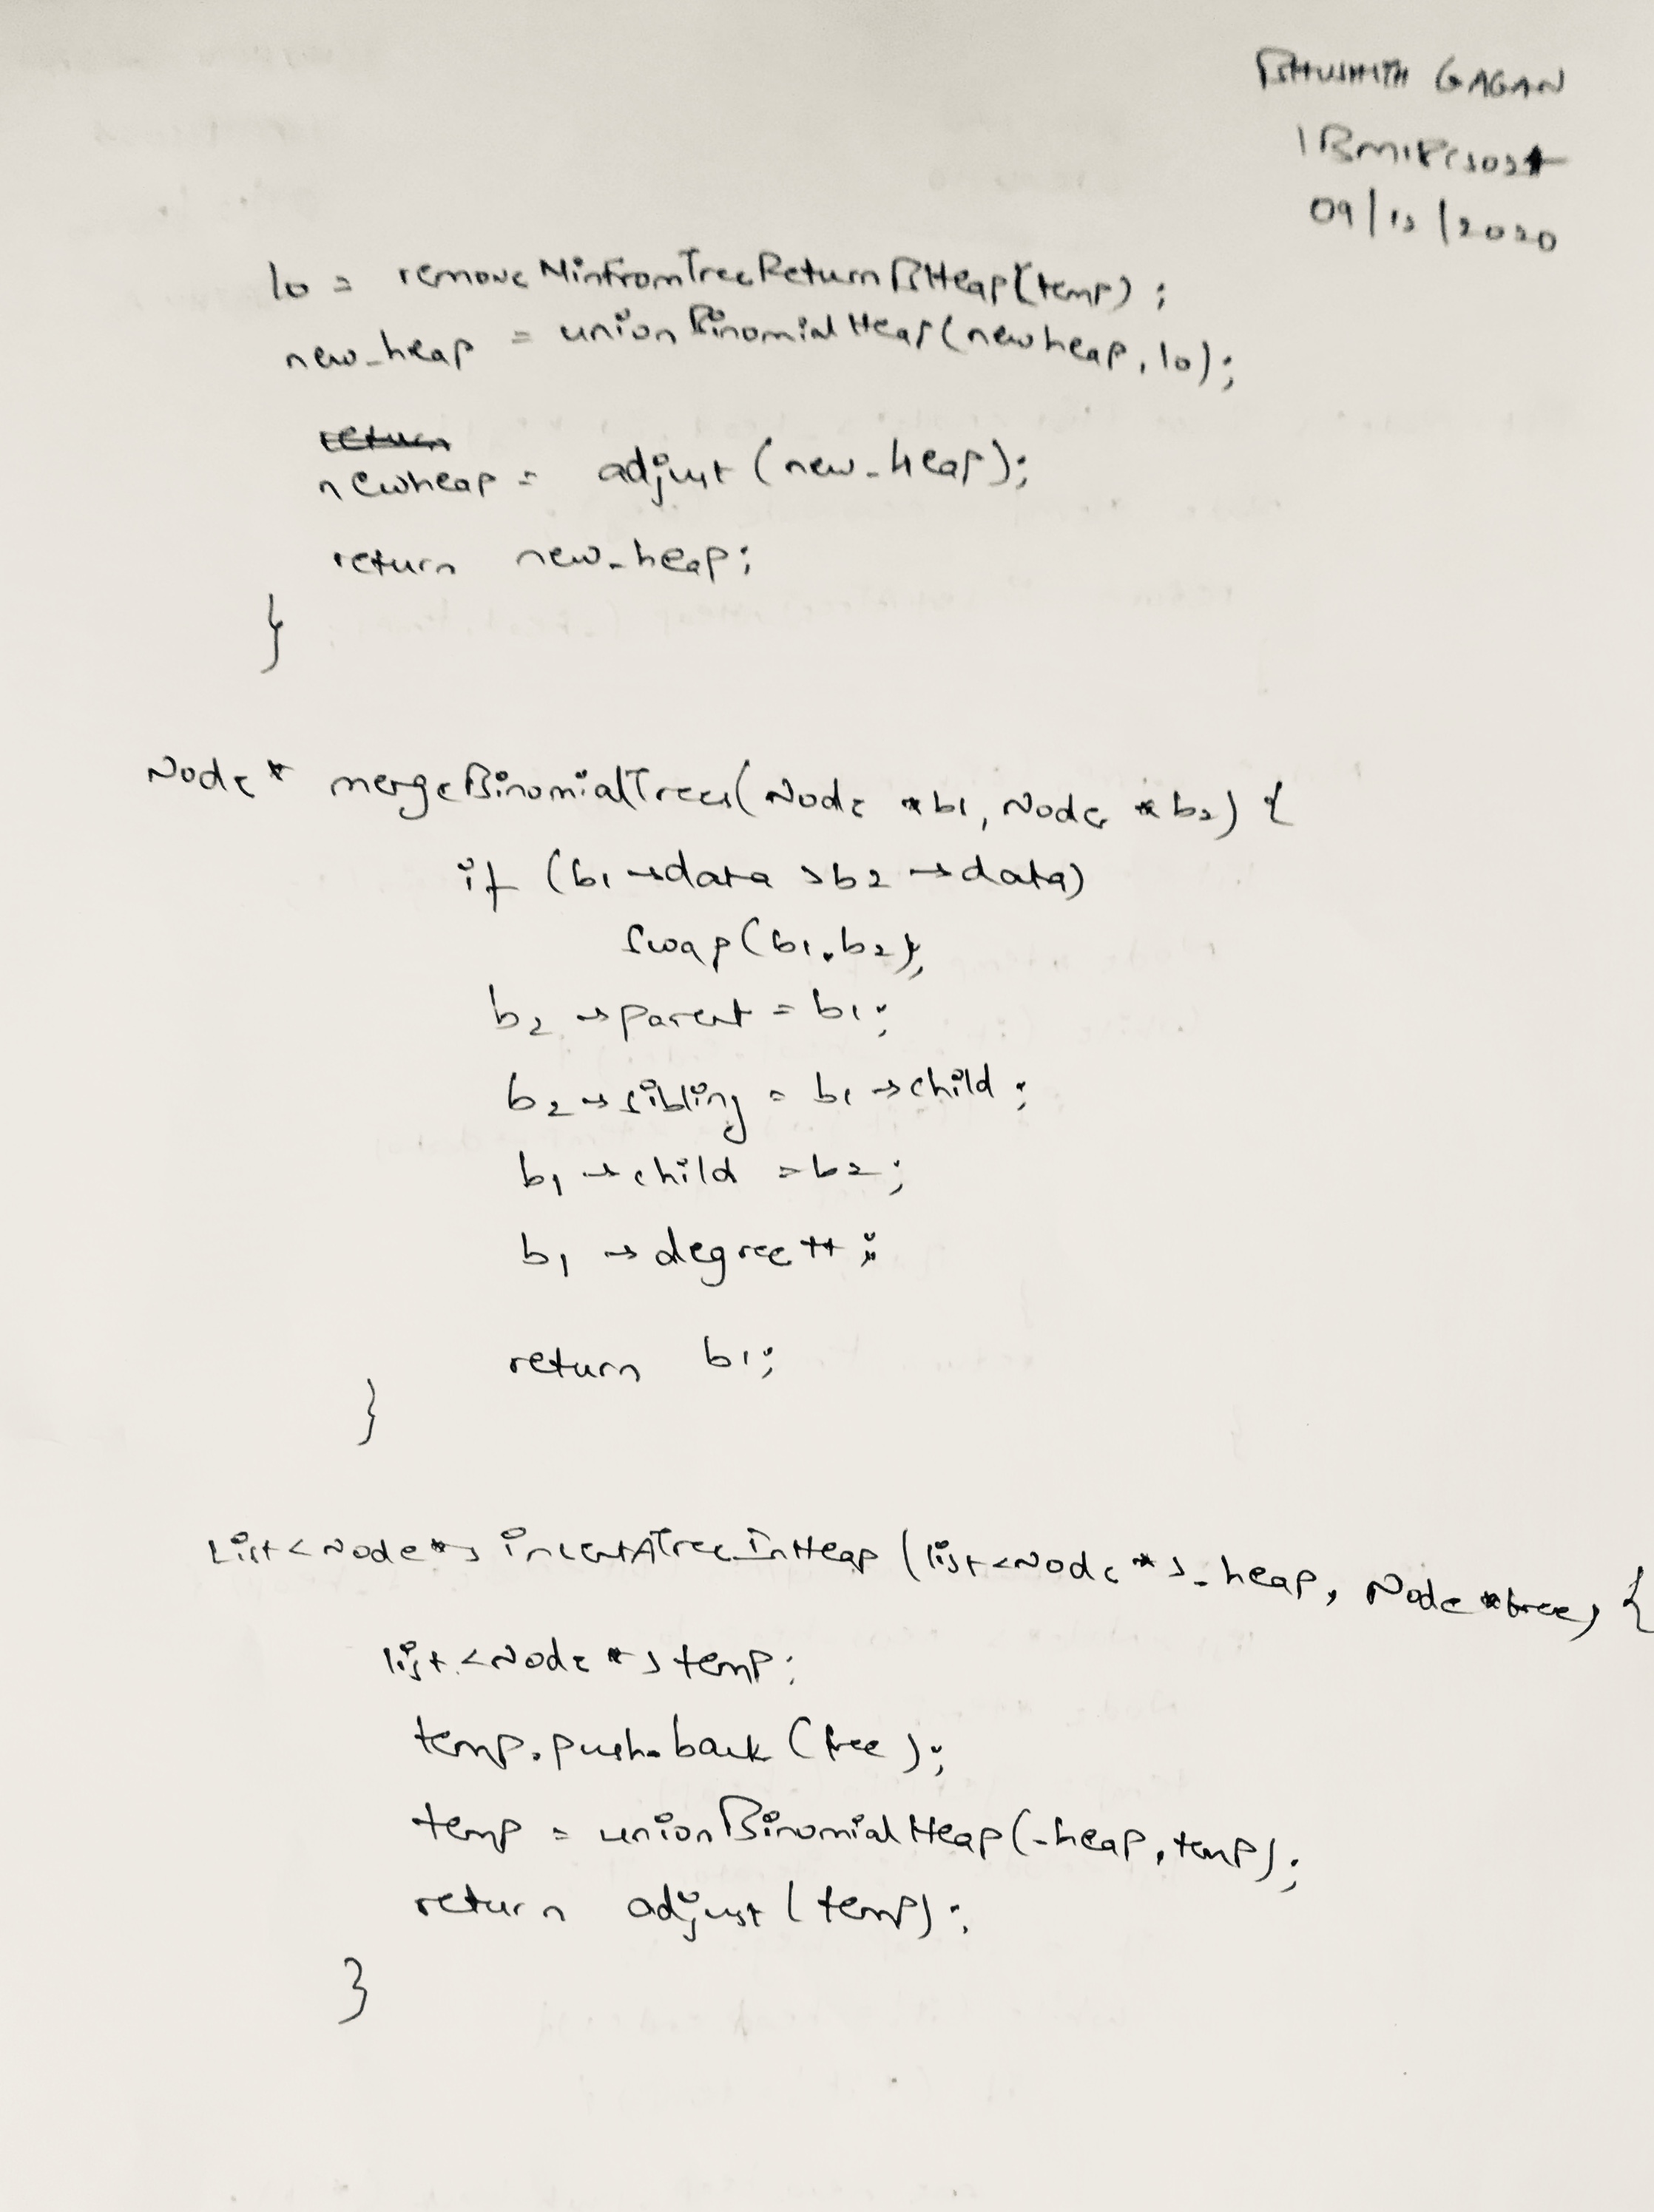 GAGAN
09/12/2020
lo = removeMinFromTreeReturnBHeap(temp);
new_heap = unionBinomialHeap(newheap, lo);
return
newheap = adjust(new_heap);
return new_heap;
}
Node* mergeBinomialTrees(Node *b1, Node *b2) {
if (b1→data >b2→data)
swap(b1,b2);
b2→parent = b1;
b2→sibling = b1→child;
b1→child = b2;
b1→degree++;
return b1;
}
List<Node*> insertATreeInHeap (list<Node*>_heap, Node *tree) {
list<Node*> temp;
temp.push_back (tree);
temp = unionBinomialHeap(_heap, temp);
return adjust(temp);
}